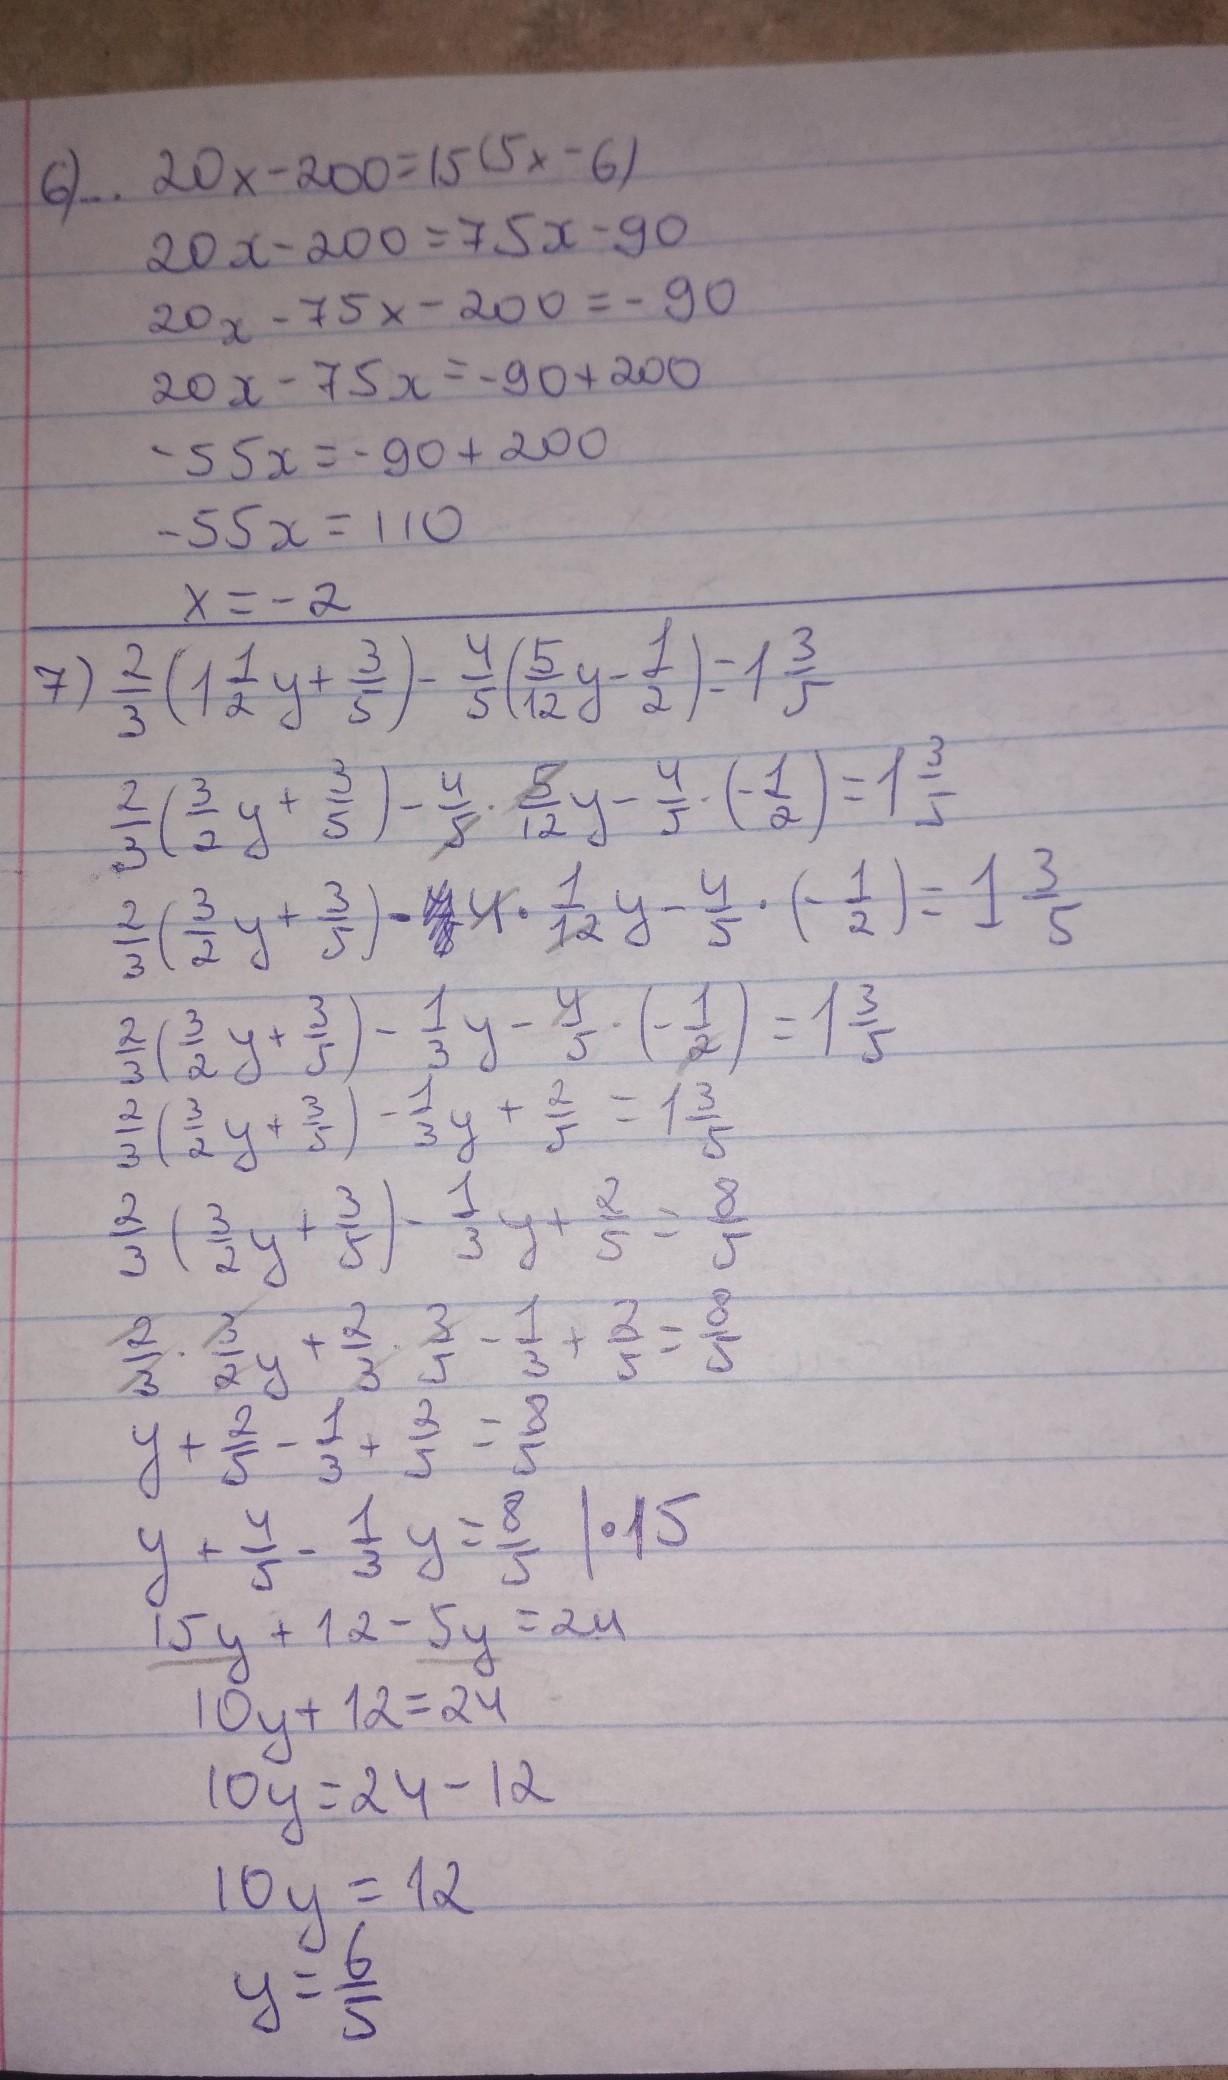 6)... 20x-200=15(5x-6)
20x-200=75x-90
20x-75x-200=-90
20x-75x=-90+200
-55x=-90+200
-55x=110
x=-2
7) 2/3(1 1/2y+3/5)-4/5(5/12y-1/2)=1 3/5
2/3(3/2y+3/5)-4/5·5/12y-4/5·(-1/2)=1 3/5
2/3(3/2y+3/5)-4·1/12y-4/5·(-1/2)=1 3/5
2/3(3/2y+3/5)-1/3y-4/5·(-1/2)=1 3/5
2/3(3/2y+3/5)-1/3y+2/5=1 3/5
2/3(3/2y+3/5)-1/3y+2/5=8/5
2/3·3/2y+2/3·3/5-1/3+2/5=8/5
y+2/5-1/3+2/5=8/5
y+4/5-1/3y=8/5 |·15
15y+12-5y=24
10y+12=24
10y=24-12
10y=12
y=6/5